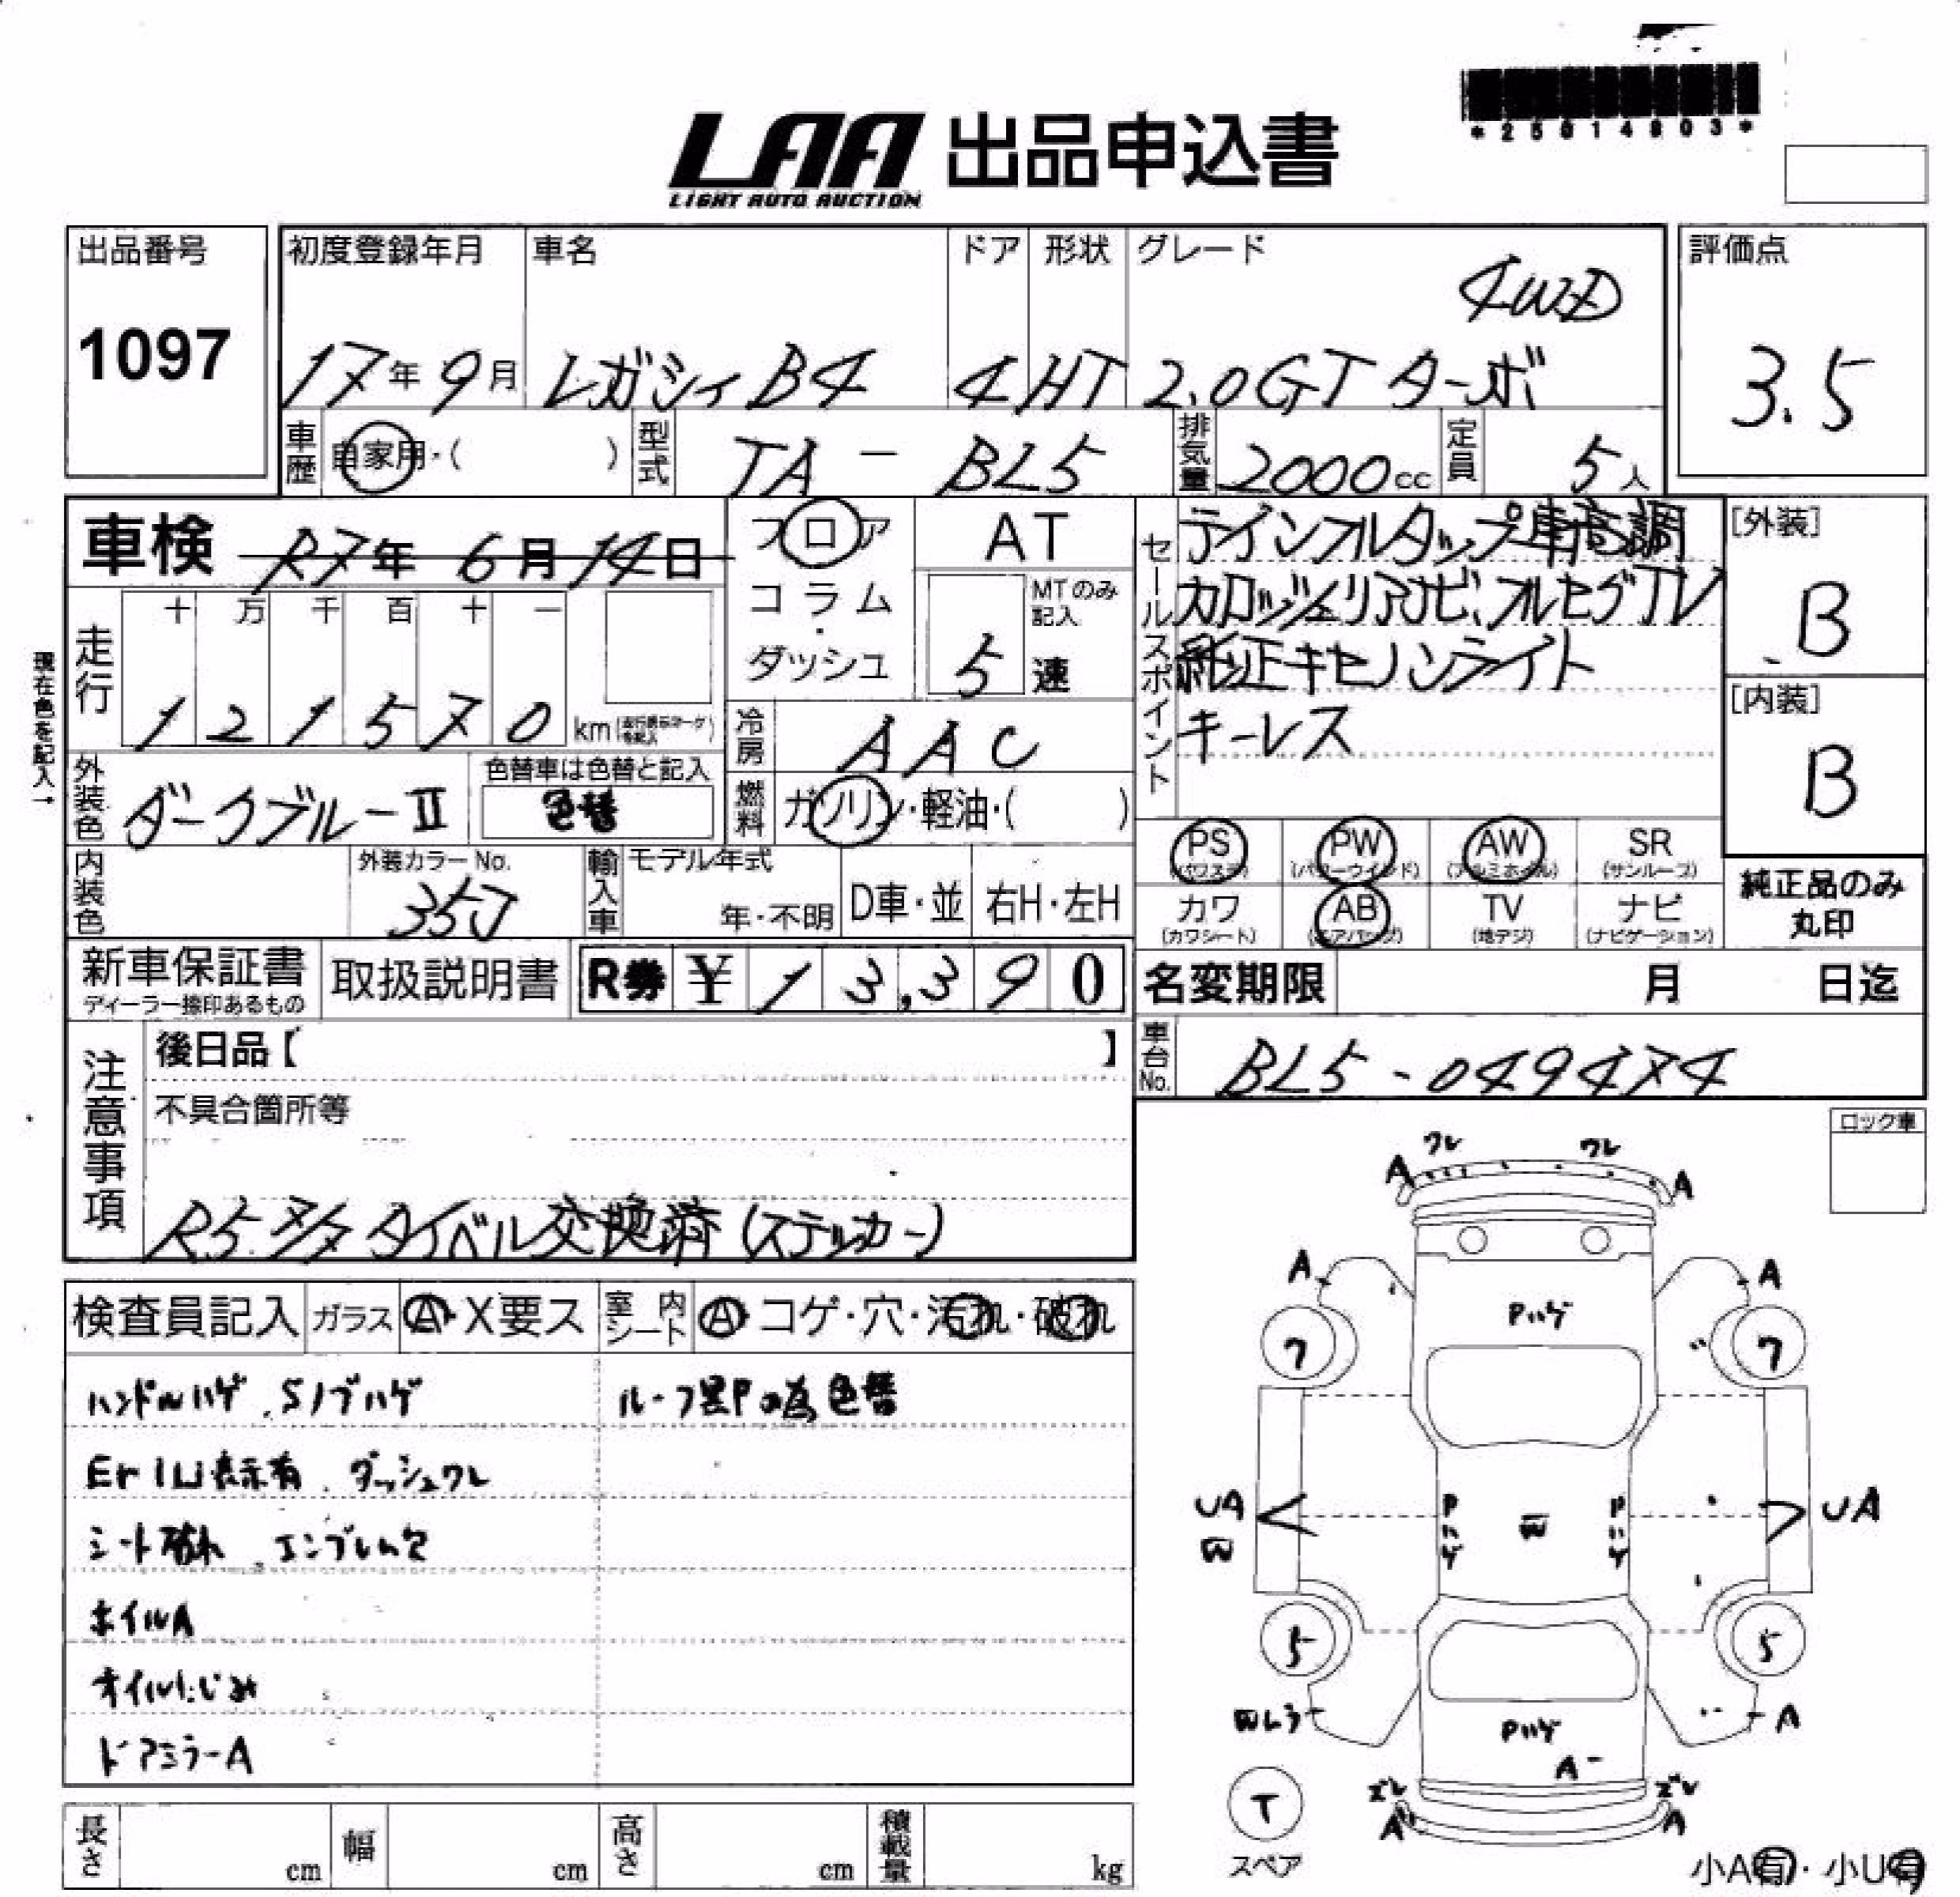 *25014803*
LAA 出品申込書
LIGHT AUTO AUCTION
出品番号
1097
初度登録年月
17年 9月
車名
レガシィB4
ドア
4
形状
HT
グレード
4WD
2.0GT ターボ
評価点
3.5
車歴
自家用・( )
型式
TA - BL5
排気量
2000cc
定員
5人
車検 R7年 6月 14日
フロア
コラム
・
ダッシュ
AT
MTのみ記入
5 速
セールスポイント
テインフルタップ車高調
カロッツェリアナビ、フルセグTV
純正キセノンライト
キーレス
[外装]
B
[内装]
B
現在色を記入→
走行
十 万 千 百 十 一
1 2 1 5 7 0 km
冷房
AAC
外装色
ダークブルーⅡ
色替車は色替と記入
色替
燃料
ガソリン・軽油・( )
内装色
外装カラーNo.
35J
輸入車
モデル年式
年・不明
D車・並
右H・左H
PS
(パワステ)
PW
(パワーウインド)
AW
(アルミホイル)
SR
(サンルーフ)
カワ
(カワシート)
AB
(エアバッグ)
TV
(地デジ)
ナビ
(ナビゲーション)
純正品のみ
丸印
新車保証書
ディーラー捺印あるもの
取扱説明書
R券 ¥ 1 3,3 9 0
名変期限 月 日迄
車台No.
BL5-049474
注意事項
後日品【 】
不具合箇所等
タイベル交換済(ステッカー)
ロック車
検査員記入
ガラス
A・X要ス
室内シート
A・コゲ・穴・汚れ・破れ
ハンドルハゲ、Sノブハゲ
ルーフ黒Pの為色替
表示有、ダッシュワレ
シート破れ、エンブレム欠
ホイルA
オイルにじみ
ドアミラーA
ワレ ワレ
A A
A A
Pハゲ
7 7
UA
W
Pハゲ
W
Pハゲ
UA
5 5
A
Pハゲ
A
ズレ ズレ
A A
T
スペア
小A有・小U有
長さ cm
幅 cm
高さ cm
積載量 kg